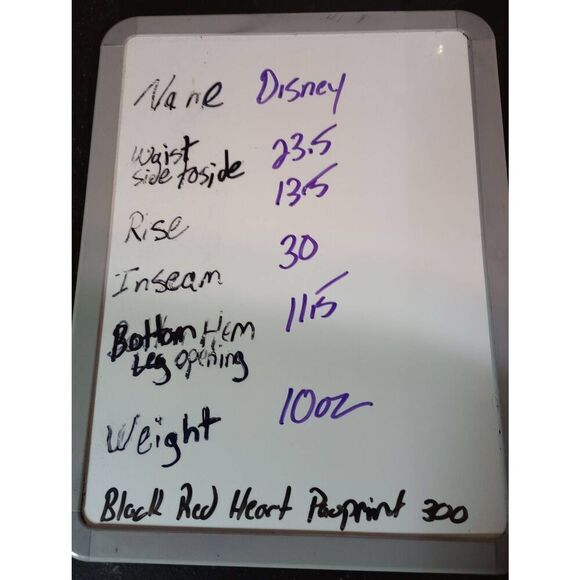 Name Disney
Waist 23.5
side to side
13.5
Rise
30
Inseam
11.5
Bottom Hem
Leg opening
Weight 10oz
Black Red Heart Pawprint 300